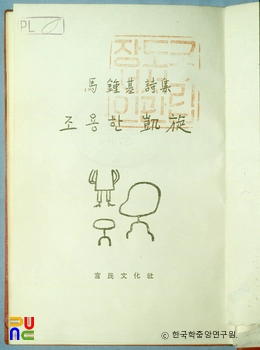 PL
馬鍾基 詩集
조용한 凱旋
富民文化社
PUNC
© 한국학중앙연구원